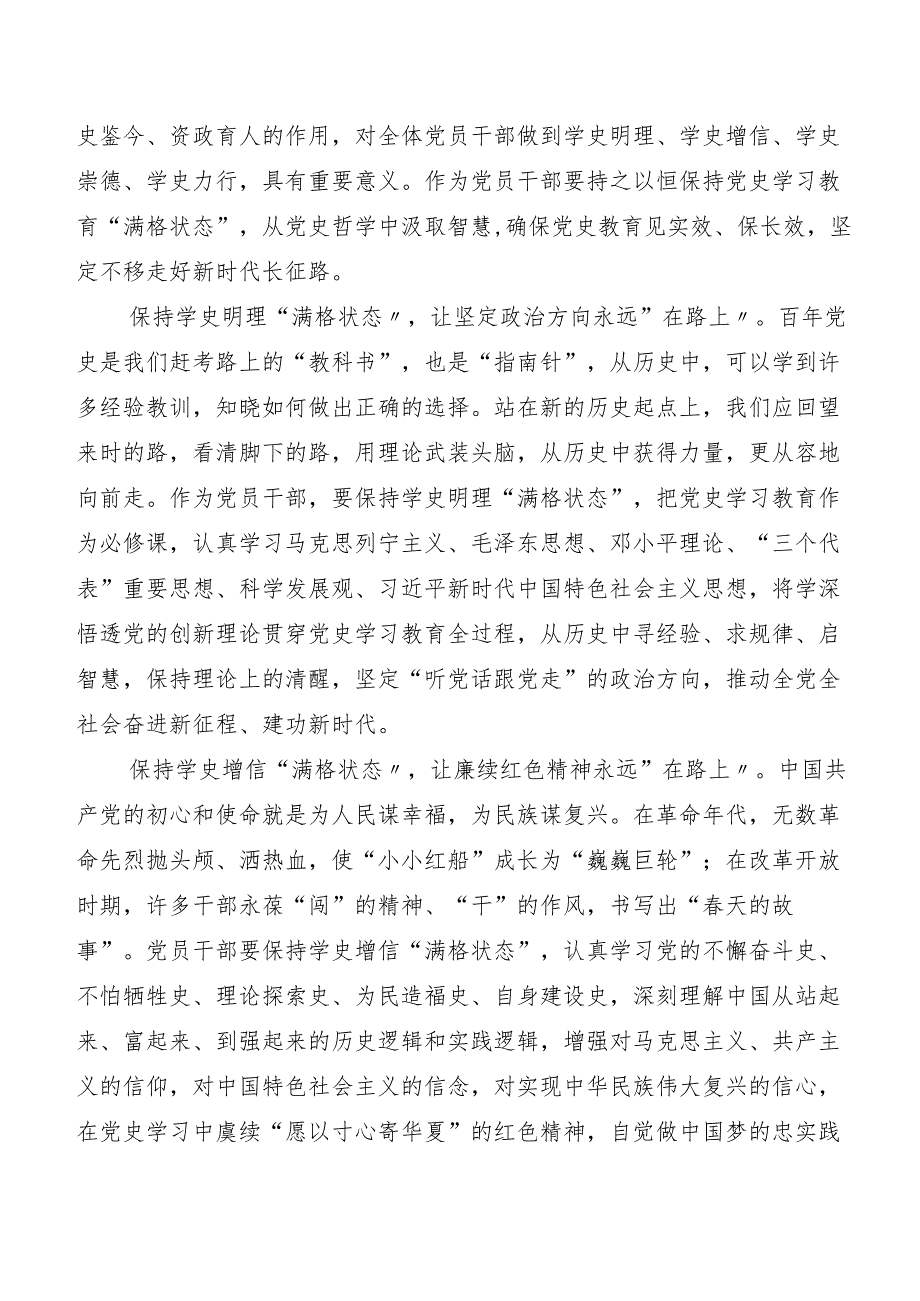 史鉴今、资政育人的作用，对全体党员干部做到学史明理、学史增信、学史
崇德、学史力行，具有重要意义。作为党员干部要持之以恒保持党史学习教
育“满格状态”，从党史哲学中汲取智慧,确保党史教育见实效、保长效，坚
定不移走好新时代长征路。
保持学史明理“满格状态〃，让坚定政治方向永远”在路上〃。百年党
史是我们赶考路上的“教科书”，也是“指南针”，从历史中，可以学到许
多经验教训，知晓如何做出正确的选择。站在新的历史起点上，我们应回望
来时的路，看清脚下的路，用理论武装头脑，从历史中获得力量，更从容地
向前走。作为党员干部，要保持学史明理“满格状态”，把党史学习教育作
为必修课，认真学习马克思列宁主义、毛泽东思想、邓小平理论、“三个代
表”重要思想、科学发展观、习近平新时代中国特色社会主义思想，将学深
悟透党的创新理论贯穿党史学习教育全过程，从历史中寻经验、求规律、启
智慧，保持理论上的清醒，坚定“听党话跟党走”的政治方向，推动全党全
社会奋进新征程、建功新时代。
保持学史增信“满格状态〃，让廉续红色精神永远”在路上〃。中国共
产党的初心和使命就是为人民谋幸福，为民族谋复兴。在革命年代，无数革
命先烈抛头颅、洒热血，使“小小红船”成长为“巍巍巨轮”；在改革开放
时期，许多干部永葆“闯”的精神、“干”的作风，书写出“春天的故
事”。党员干部要保持学史增信“满格状态”，认真学习党的不懈奋斗史、
不怕牺牲史、理论探索史、为民造福史、自身建设史，深刻理解中国从站起
来、富起来、到强起来的历史逻辑和实践逻辑，增强对马克思主义、共产主
义的信仰，对中国特色社会主义的信念，对实现中华民族伟大复兴的信心，
在党史学习中虞续“愿以寸心寄华夏”的红色精神，自觉做中国梦的忠实践